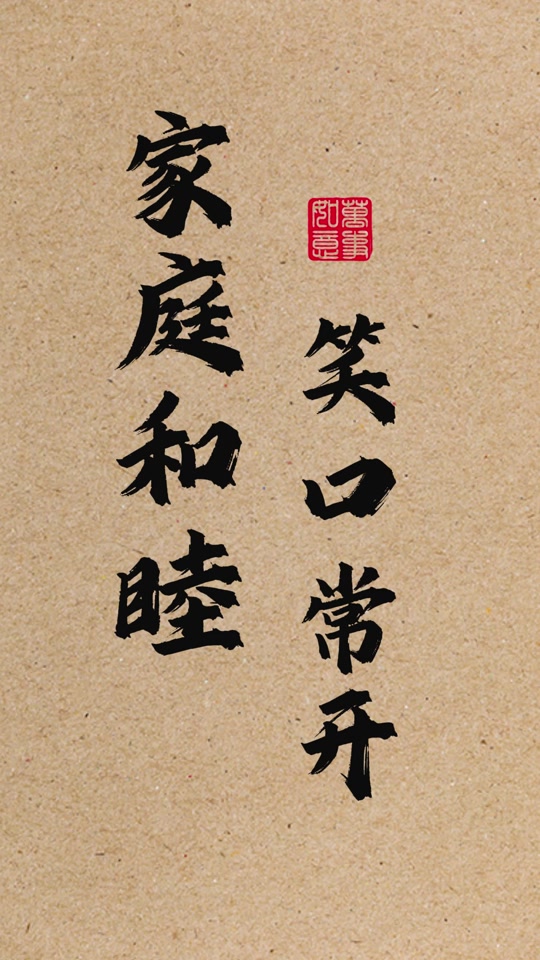 家庭和睦
萬事如意
笑口常开